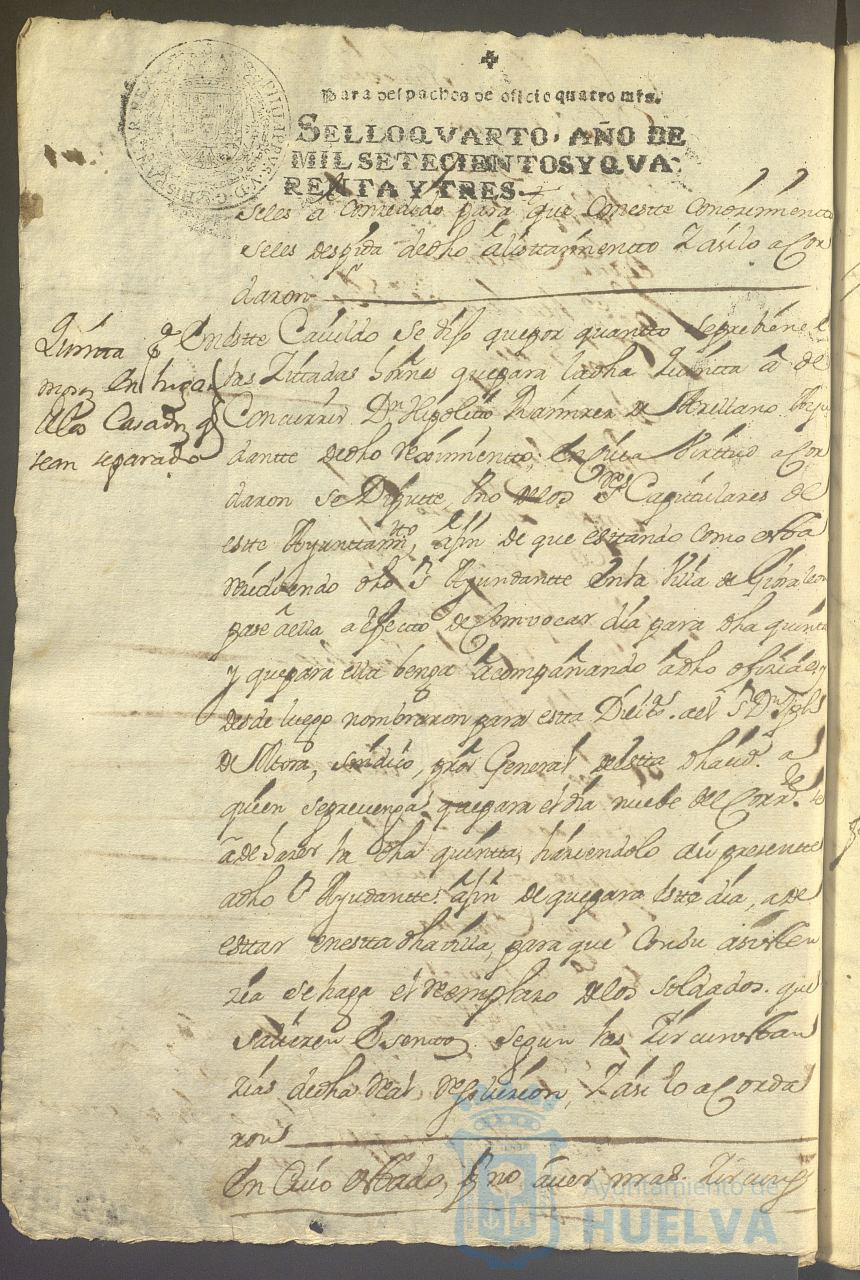 PHILIPPVS V D G HISPANIAR REX
Para despachos de oficio quatro mrs.
SELLO QVARTO, AÑO DE
MIL SETECIENTOS Y QVA-
RENTA Y TRES.
seles a consedido para que conestte
seles despida dedho alisttamientto Zasilo acor
daron
Quintta pa
mozos en lugar
de los Casados qe
sean separados
Enestte Cavildo se dijo quepor quantto seprebiene
las Zittadas hornes quepara ladha Quintta a de
Concurrir Dn Hipolitto Ramirez de Arellano Ayu
dantte dedho reximientto, en cuia Virttud acor
daron se Diputte Uno delos Sres Capitulares de
estte Ayunttamto, afin de que esttando como estta
residiendo dho Sr Ayundantte enla Villa de Gibraleon
pase aella a efectto de combocar dia para dha quintta
y quepara ella benga acompañando adho ofizial y
desde luego nombraron para estta al Sr Dn
de Mora, sindico, pror General destta dha a
quien seprevenga quepara el dia nuebe del Corrte
ade hazer la dha quintta, haziendolo asi presentte
adho Sr Ayudantte afin de quepara estte dia, ade
esttar enestta dha villa, para que Consu asisten
zia se haga el Reemplazo delos soldados que
salieren Esentos segun las Zircunsttan
zias dedha Real, Zasi lo acorda
ron
En Cuio esttado, y no aver mas
Ayuntamiento de
HUELVA